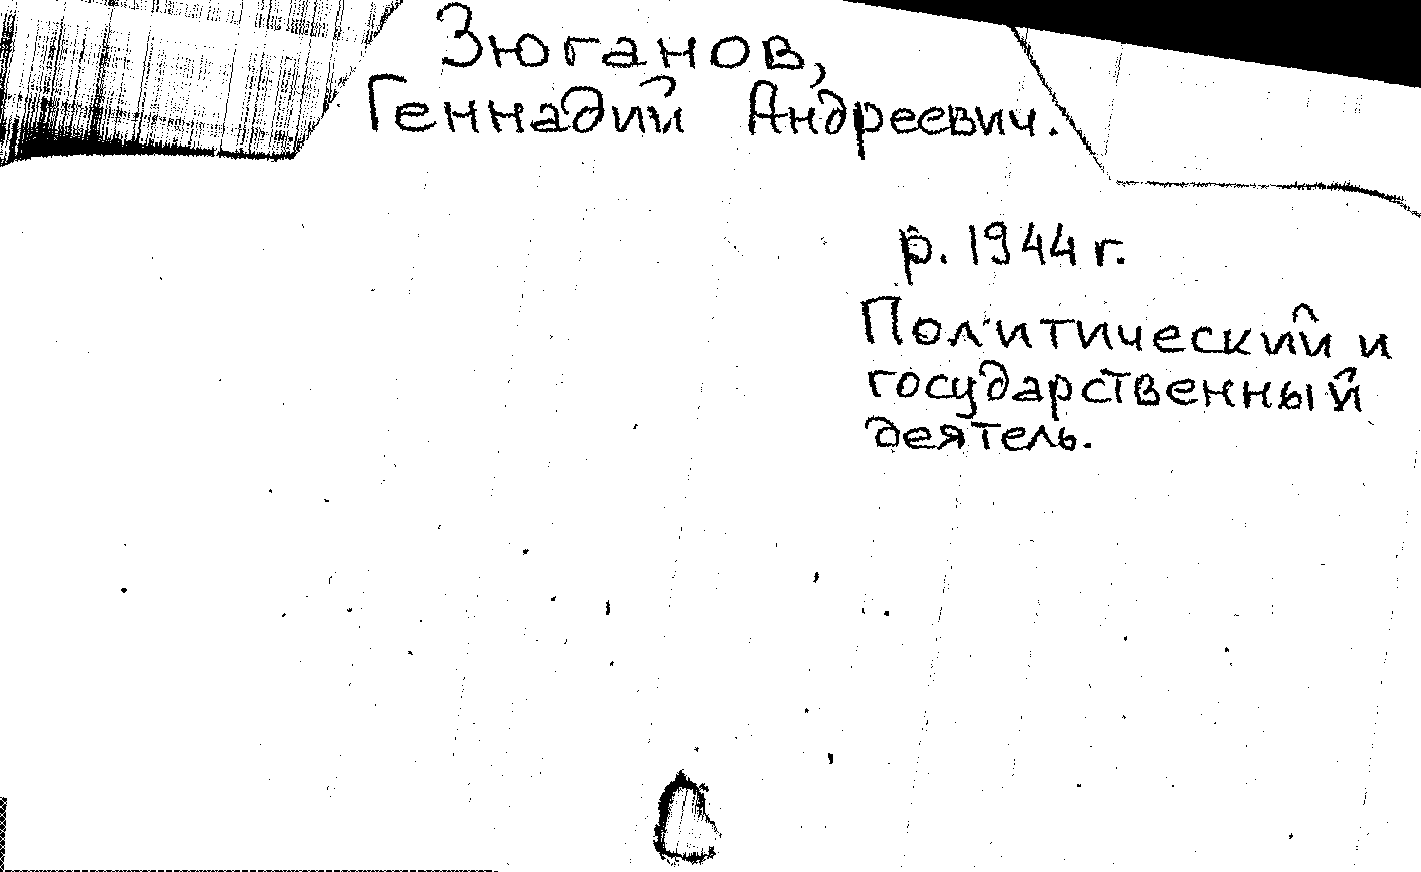 Зюганов,
Геннадий Андреевич.
р. 1944 г.
Политический и
государственный
деятель.